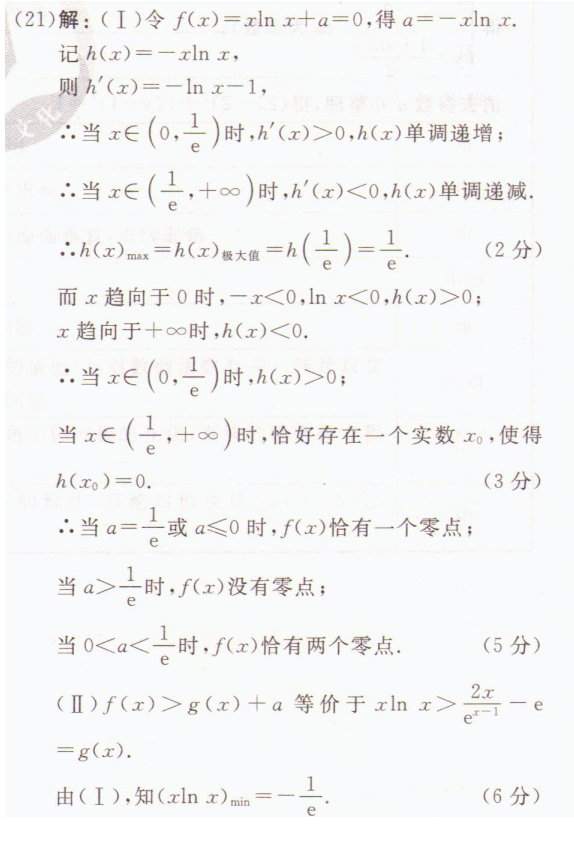 (21)解:(Ⅰ)令 f(x)=xln x+a=0,得 a=-xln x.
记 h(x)=-xln x,
则 h′(x)=-ln x-1,
∴当 x∈(0,1/e)时,h′(x)>0,h(x)单调递增;
∴当 x∈(1/e,+∞)时,h′(x)<0,h(x)单调递减.
∴h(x)max=h(x)极大值=h(1/e)=1/e. (2 分)
而 x 趋向于 0 时,-x<0,ln x<0,h(x)>0;
x 趋向于+∞时,h(x)<0.
∴当 x∈(0,1/e)时,h(x)>0;
当 x∈(1/e,+∞)时,恰好存在一个实数 x₀,使得
h(x₀)=0. (3 分)
∴当 a=1/e或 a≤0 时,f(x)恰有一个零点;
当 a>1/e时,f(x)没有零点;
当 0<a<1/e时,f(x)恰有两个零点. (5 分)
(Ⅱ)f(x)>g(x)+a 等价于 xln x>2x/e^(x-1)-e
=g(x).
由(Ⅰ),知(xln x)min=-1/e. (6 分)
文化